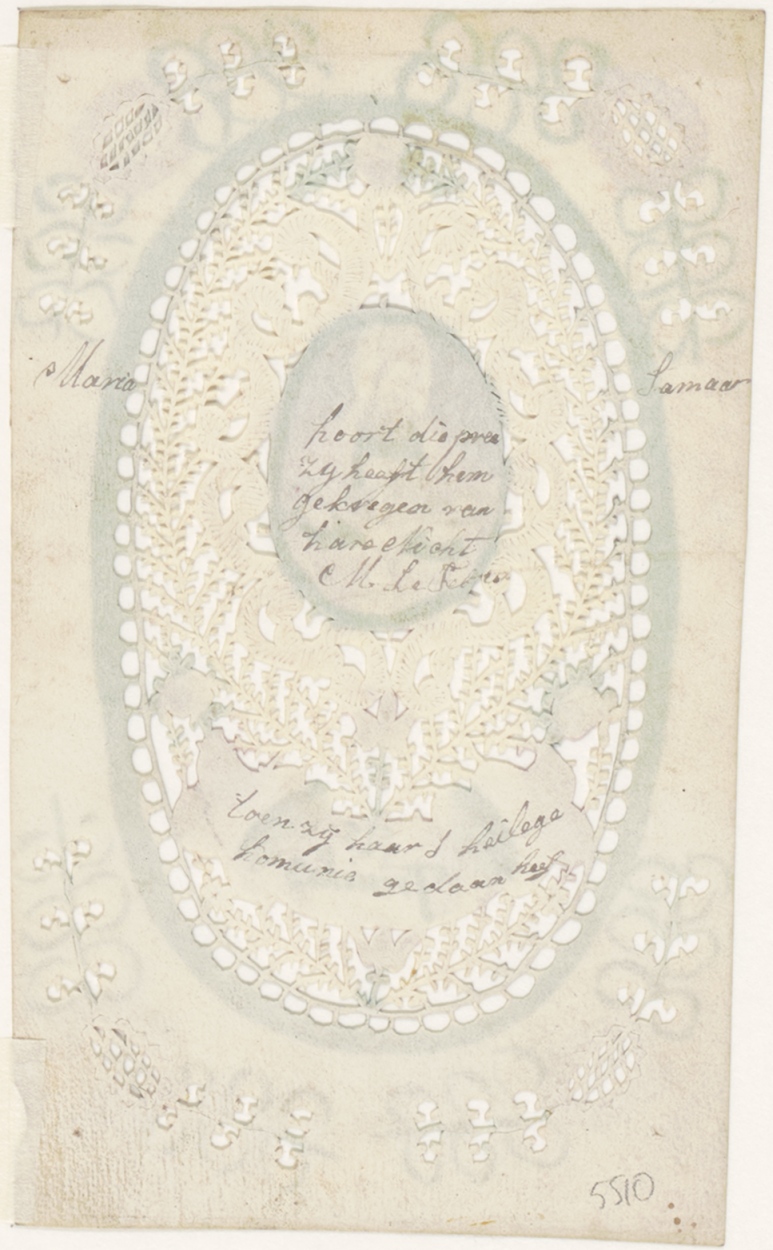 Maria Samaar
hoort die pren
zy heeft hem
gekregen van
hare Nicht
M. Le
toen zy haar 1 heilege
komunie gedaan heef
5510